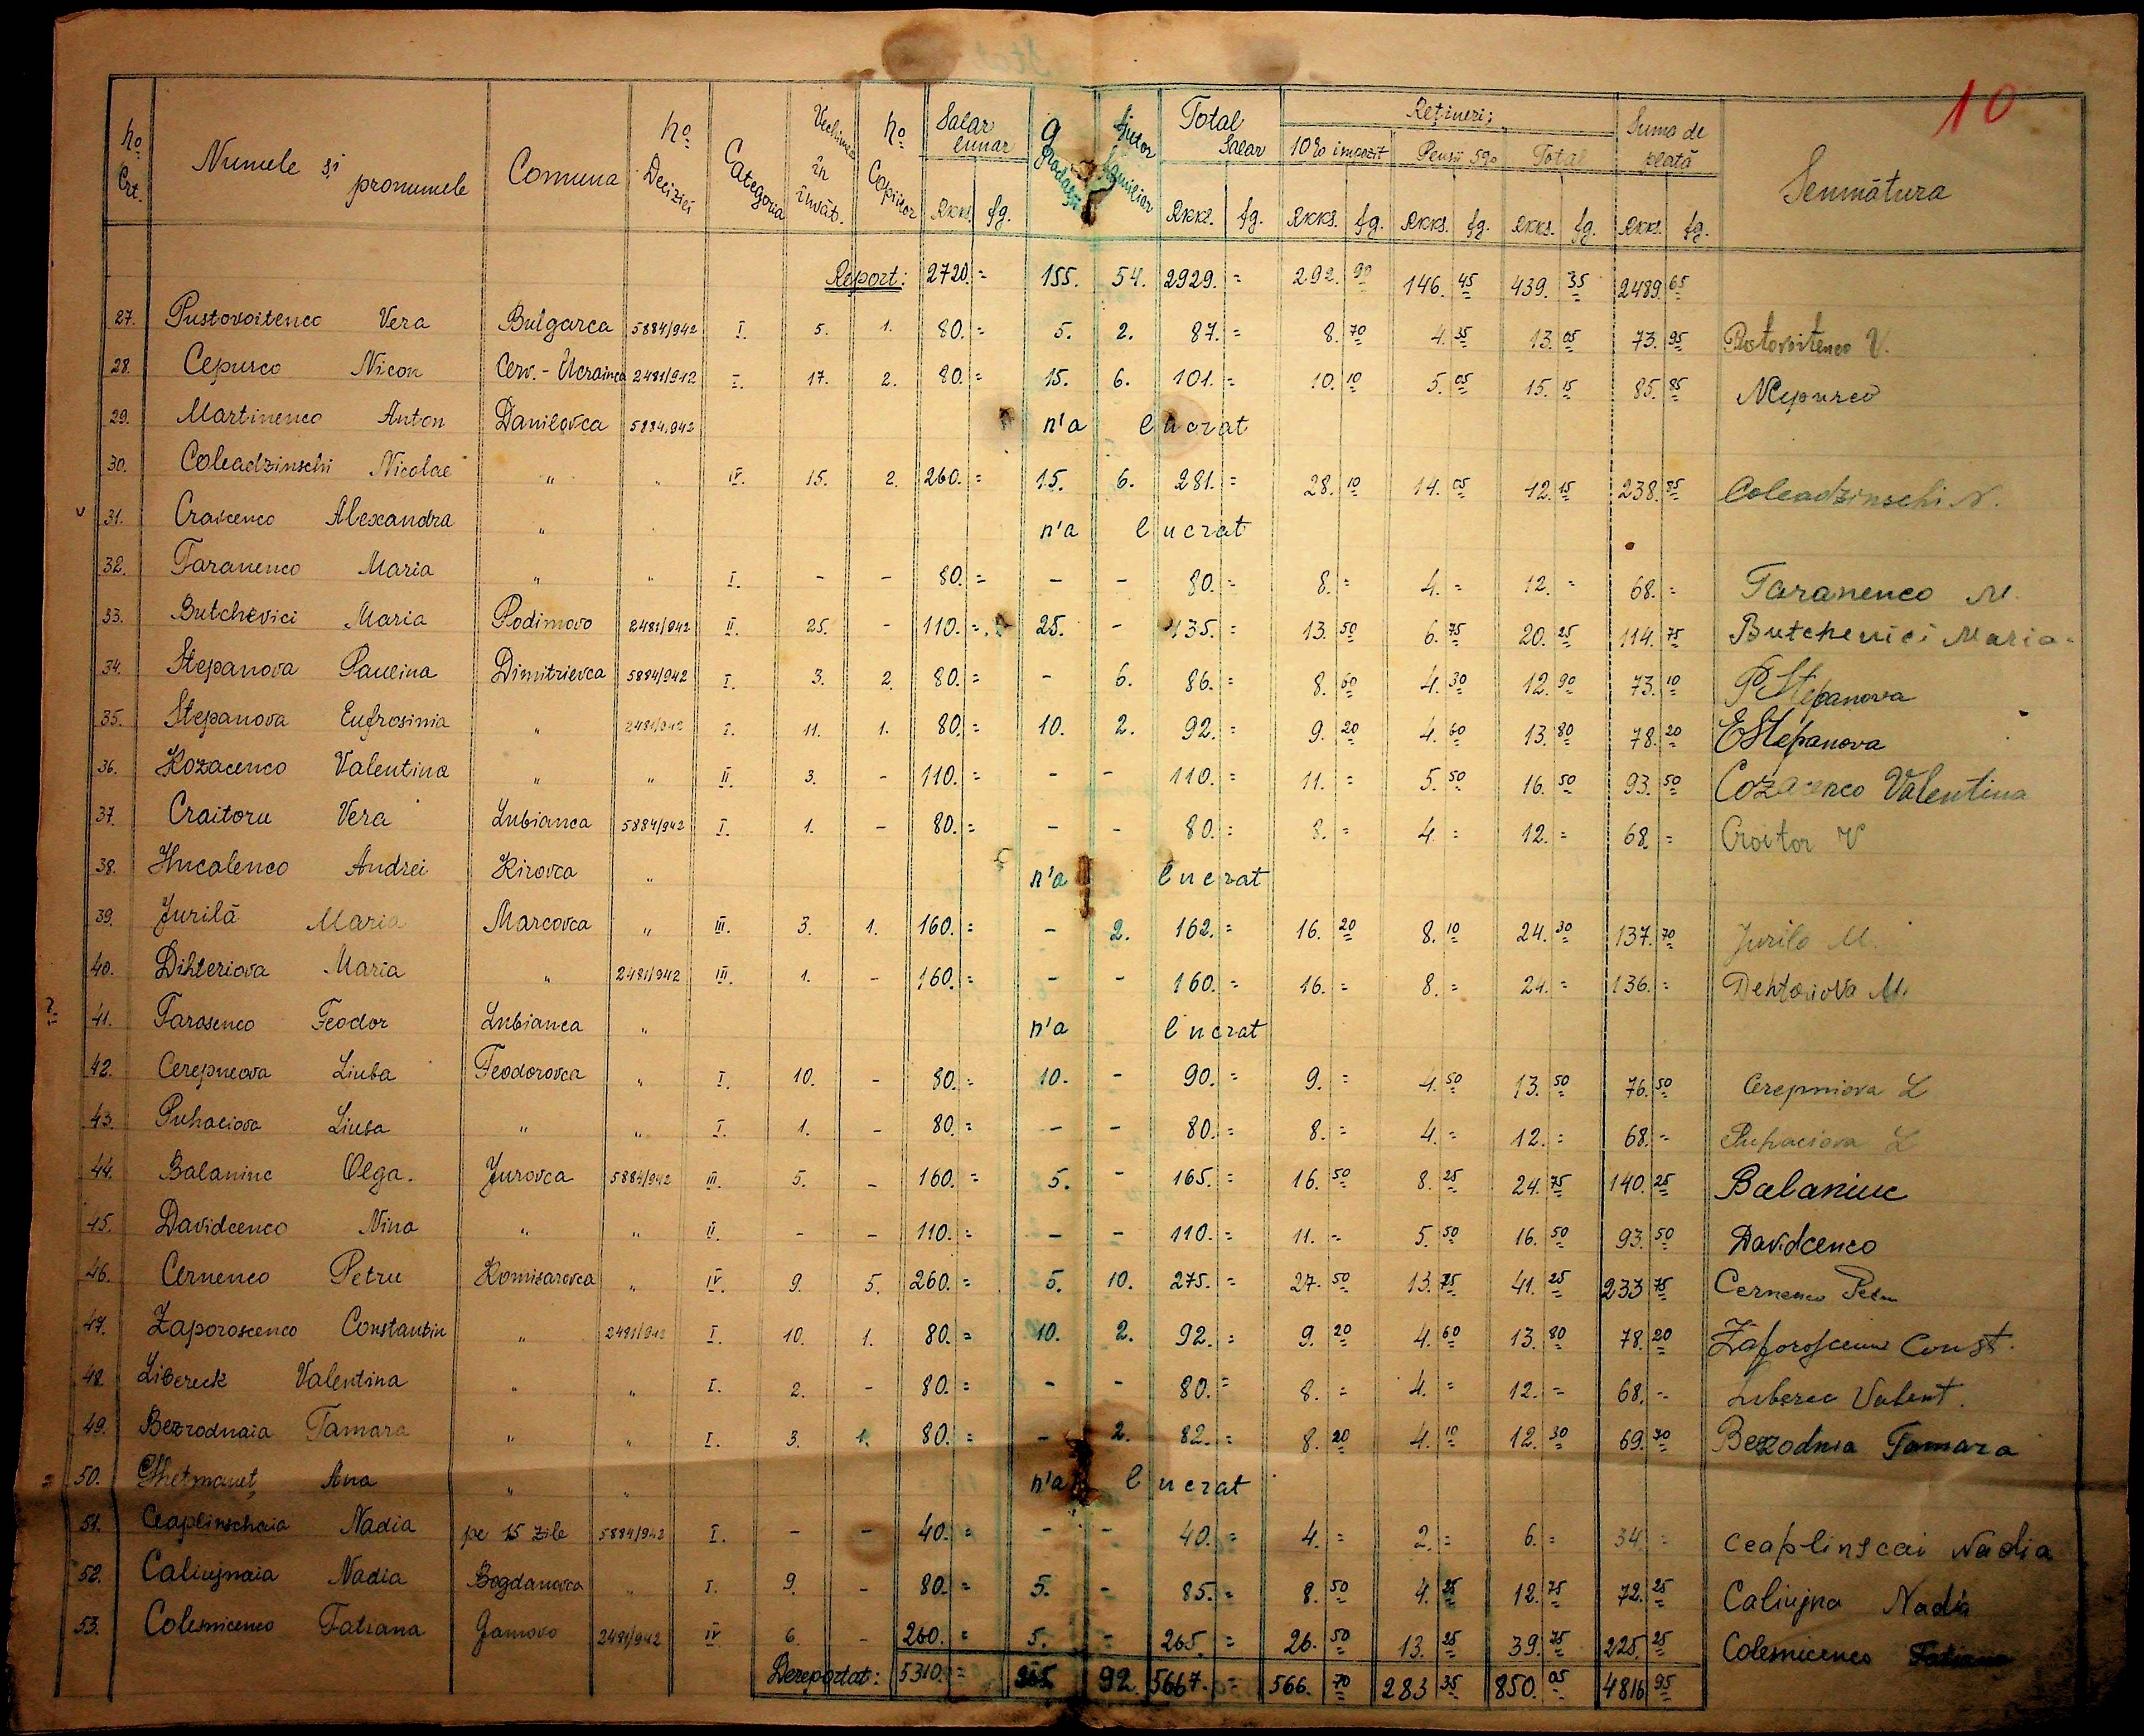 10
No Crt. Numele și pronumele Comuna No Deciziei Categoria Vechimea în învăt. No Copiilor Salar lunar Gradații Ajutor familiar Total Salar Rețineri: Suma de plată Semnătura
10% impozit Pensii 5% Total
RKKS. fg. RKKS. fg. RKKS. fg. RKKS. fg. RKKS. fg. RKKS. fg.
Report: 2720. = 155. 54. 2929. = 292. 90 146. 45 439. 35 2489. 65
27. Pustovoitenco Vera Bulgarca 5884/942 I. 5. 1. 80. = 5. 2. 87. = 8. 70 4. 35 13. 05 73. 95 Pustovoitenco V.
28. Cepurco Nicon Cerv. - Ucrainca 2481/942 I. 17. 2. 80. = 15. 6. 101. = 10. 10 5. 05 15. 15 85. 85 NCepurco
29. Martinenco Anton Danilovca 5884/942 n'a lucrat
30. Coleadzinschi Nicolae " " IV. 15. 2. 260. = 15. 6. 281. = 28. 10 14. 05 42. 15 238. 85 Coleadzinschi N.
v 31. Cravcenco Alexandra " n'a lucrat
32. Taranenco Maria " " I. - - 80. = - - 80. = 8. = 4. = 12. = 68. = Taranenco M.
33. Butchevici Maria Podimovo 2481/942 II. 25. - 110. = 25. - 135. = 13. 50 6. 75 20. 25 114. 75 Butchevici Maria
34. Stepanova Paulina Dimitrievca 5884/942 I. 3. 2. 80. = - 6. 86. = 8. 60 4. 30 12. 90 73. 10 PStepanova
35. Stepanova Eufrosinia " 2481/942 I. 11. 1. 80. = 10. 2. 92. = 9. 20 4. 60 13. 80 78. 20 EStepanova
36. Kozacenco Valentina " " II. 3. - 110. = - - 110. = 11. = 5. 50 16. 50 93. 50 Cozacenco Valentina
37. Craitoru Vera Lubianca 5884/942 I. 1. - 80. = - - 80. = 8. = 4. = 12. = 68. = Croitor V
38. Hucalenco Andrei Kirovca " n'a lucrat
39. Jurilă Maria Marcovca " III. 3. 1. 160. = - 2. 162. = 16. 20 8. 10 24. 30 137. 70 Jurilo M.
40. Dihteriova Maria " 2481/942 III. 1. - 160. = - - 160. = 16. = 8. = 24. = 136. = Dehtoriova M.
? 41. Tarasenco Feodor Lubianca " n'a lucrat
42. Cerepneova Liuba Feodorovca " I. 10. - 80. = 10. - 90. = 9. = 4. 50 13. 50 76. 50 Cerepniova L
43. Puhaciova Liuba " " I. 1. - 80. = - - 80. = 8. = 4. = 12. = 68. = Puhaciova L
44. Balaniuc Olga. Jurovca 5884/942 III. 5. - 160. = 5. - 165. = 16. 50 8. 25 24. 75 140. 25 Balaniuc
45. Davidcenco Nina " " II. - - 110. = - - 110. = 11. = 5. 50 16. 50 93. 50 Davidcenco
46. Cernenco Petru Komisarovca " IV. 9. 5. 260. = 5. 10. 275. = 27. 50 13. 75 41. 25 233 75 Cernenco Petru
47. Zaporoscenco Constantin " 2481/942 I. 10. 1. 80. = 10. 2. 92. = 9. 20 4. 60 13. 80 78. 20 Const.
48. Libereck Valentina " " I. 2. - 80. = - - 80. = 8. = 4. = 12. = 68. = Liberec Valent.
49. Bezrodnaia Tamara " " I. 3. 1. 80. = - 2. 82. = 8. 20 4. 10 12. 30 69. 70 Bezodnia Tamara
50. Ghetmaneț Ana " " n'a lucrat
51. Ceaplinschaia Nadia pe 15 zile 5884/942 I. - - 40. = - - 40. = 4. = 2. = 6. = 34. = Ceaplinscai Nadia
52. Caliujnaia Nadia Bogdanovca " I. 9. - 80. = 5. - 85. = 8. 50 4. 25 12. 75 72. 25 Caliujna Nadia
53. Colesnicenco Tatiana Gamovo 2481/942 IV 6. - 260. = 5. - 265. = 26. 50 13. 25 39. 75 225. 25 Colesnicenco Tatiana
Dereportat: 5310. = 265. 92. 5667. = 566. 70 283 35 850. 05 4816 95